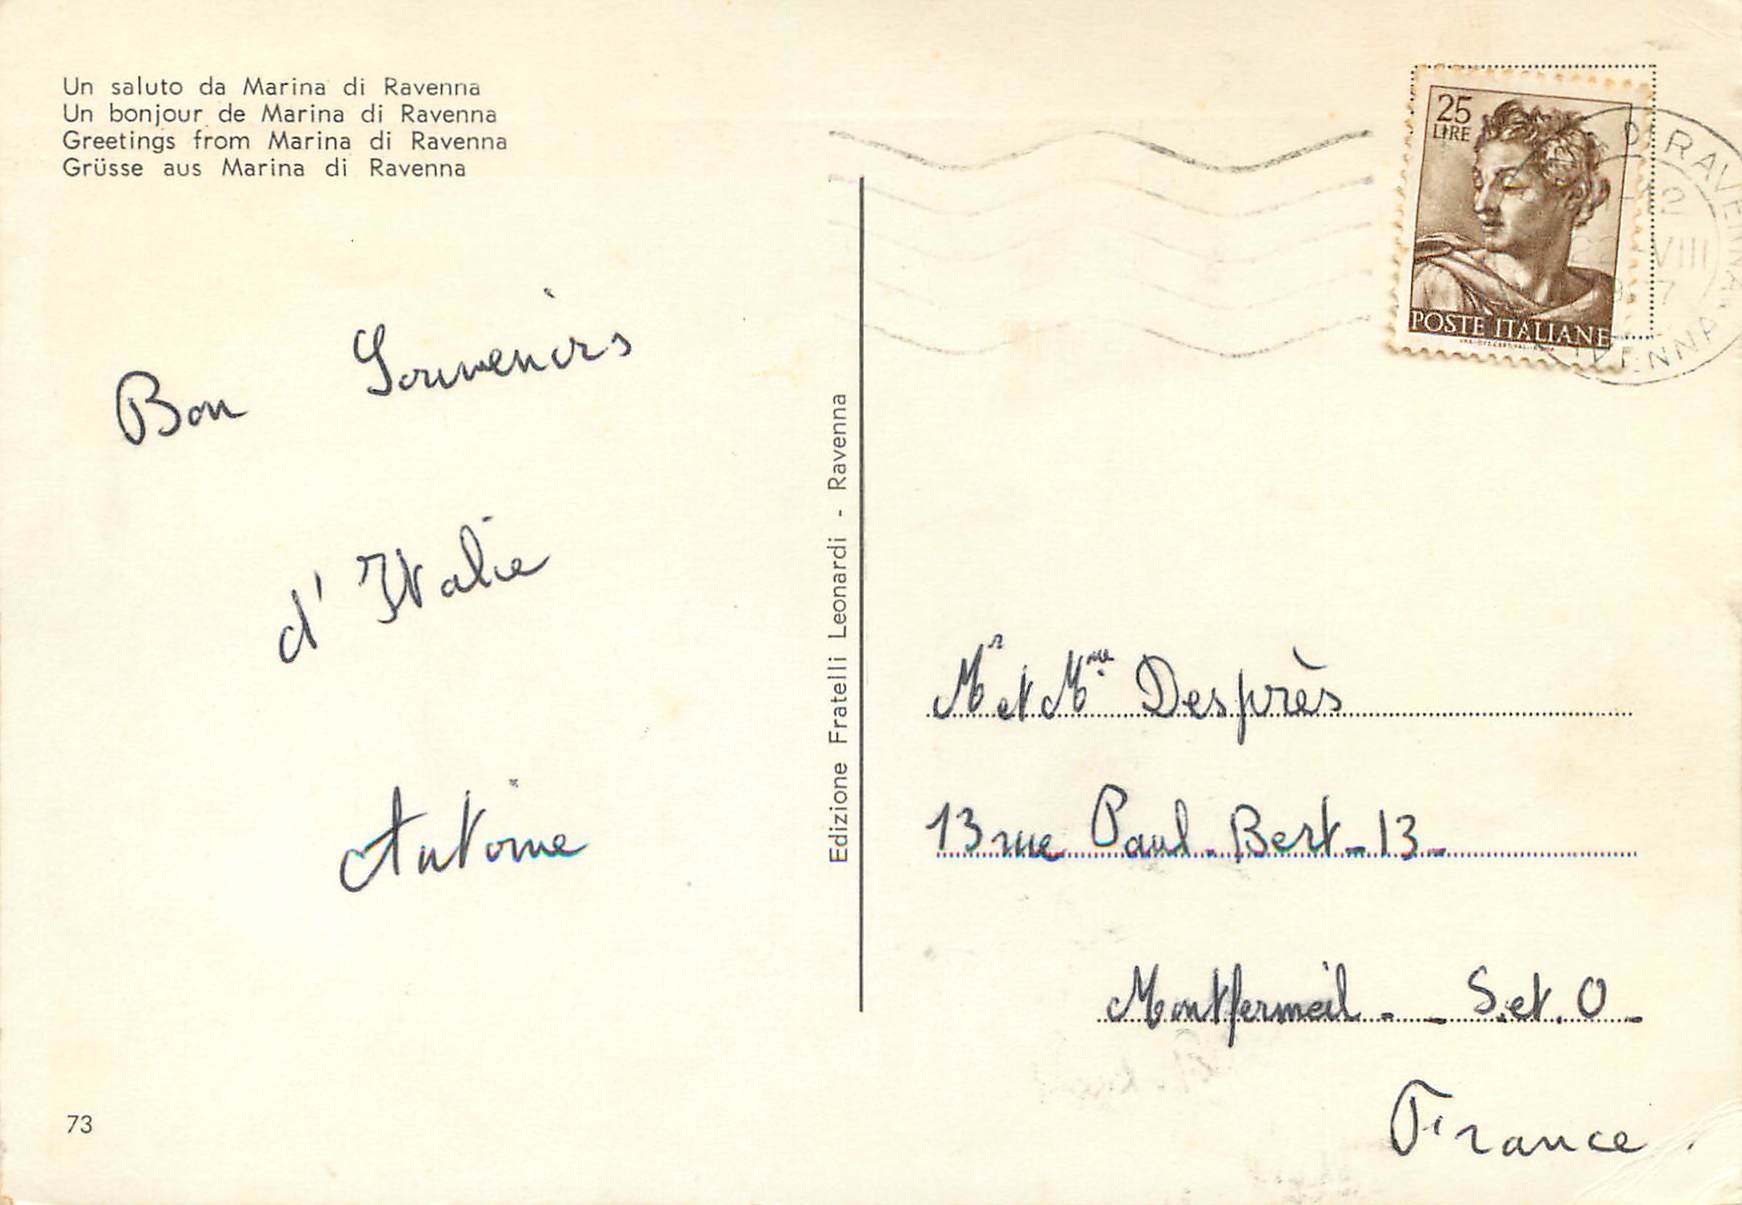 Un saluto da Marina di Ravenna
Un bonjour de Marina di Ravenna
Greetings from Marina di Ravenna
Grüsse aus Marina di Ravenna
Bon Souvenirs
d'Italie
Antoine
73
Edizione Fratelli Leonardi - Ravenna
25
LIRE
POSTE ITALIANE
DI RAVENNA
12
VIII
RAVENNA
Mr et Mme Desprès
13 rue Paul-Bert-13-
Montfermeil - - S.et.O-
France.